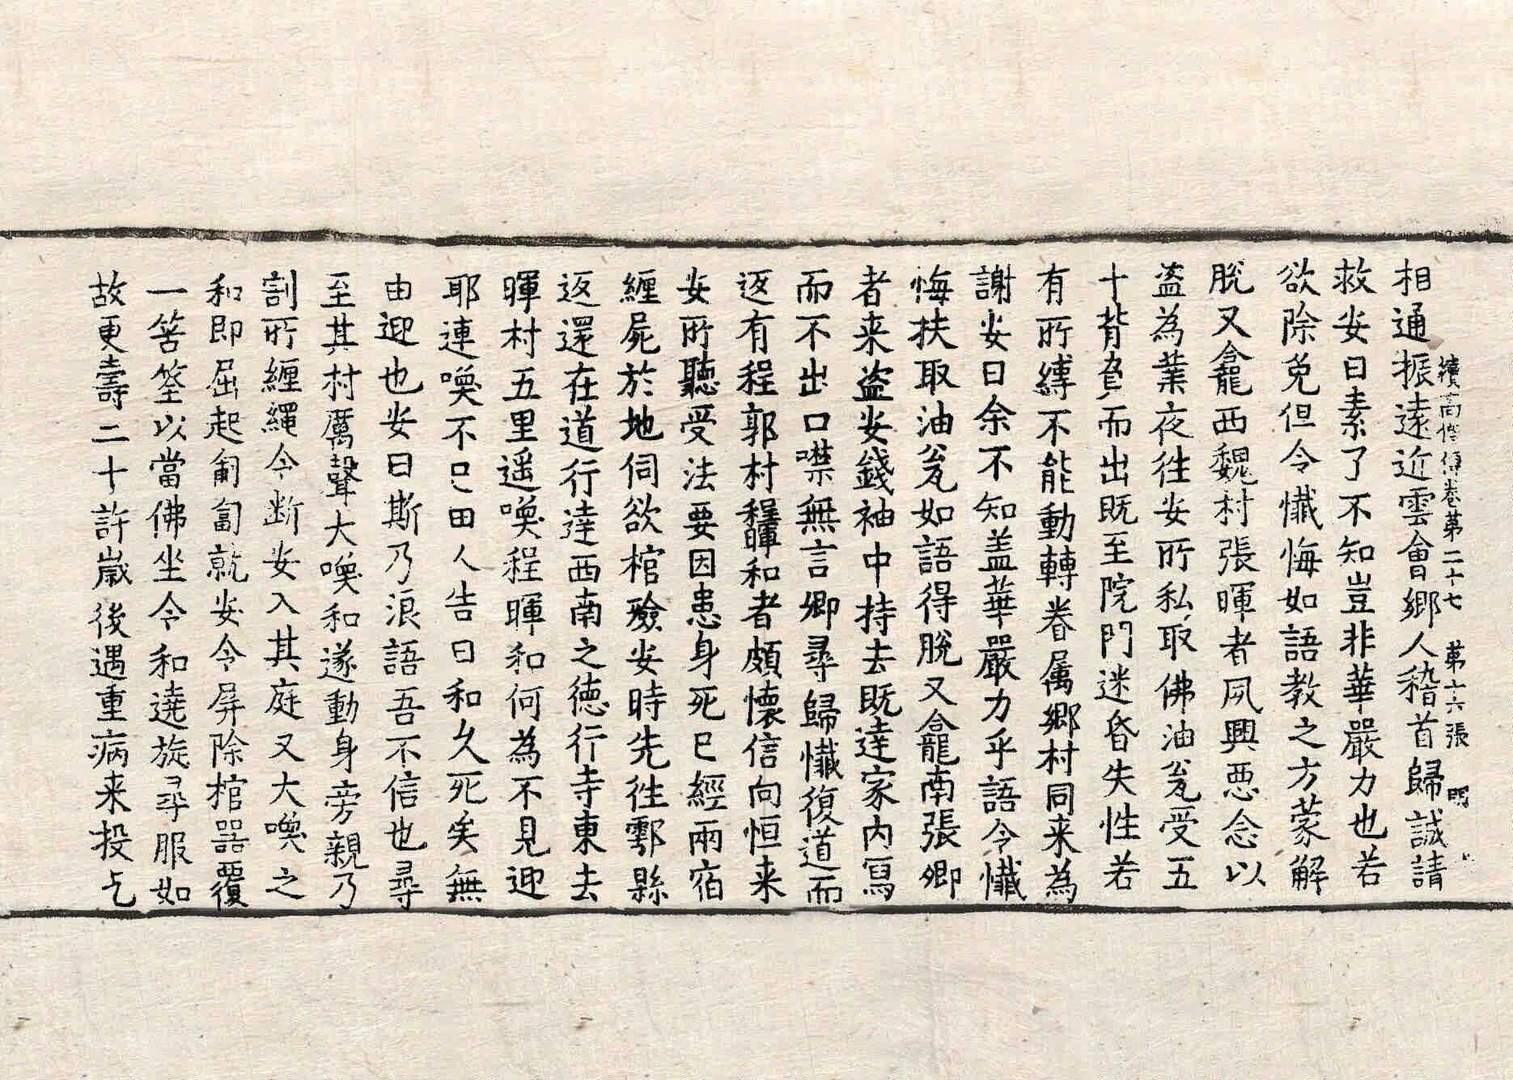 續高僧傳卷第二十七 第十六張 
相通振遠近雲會鄉人稽首歸誠請
救安曰素了不知豈非華嚴力也若
欲除免但令懺悔如語教之方蒙解
脫又龕西魏村張暉者夙興惡念以
盗為業夜往安所私取佛油瓮受五
十背負而出既至院門迷昏失性若
有所縛不能動轉眷属鄉村同来為
謝安曰余不知盖華嚴力乎語令懺
悔扶取油瓮如語得脫又龕南張卿
者来盗安錢袖中持去既達家內寫
而不出口噤無言卿尋歸懺復道而
返有程郭村程暉和者頗懷信向恒来
安所聽受法要因患身死已經兩宿
纏屍於地伺欲棺殮安時先往鄠縣
返還在道行達西南之德行寺東去
暉村五里遥喚程暉和何為不見迎
耶連喚不已田人告曰和久死矣無
由迎也安曰斯乃浪語吾不信也尋
至其村厲聲大喚和遂動身旁親乃
割所纏繩令断安入其庭又大喚之
和即屈起匍匐就安令屏除棺器覆
一筶筌以當佛坐令和遶旋尋服如
故更壽二十許嵗後遇重病来投乞